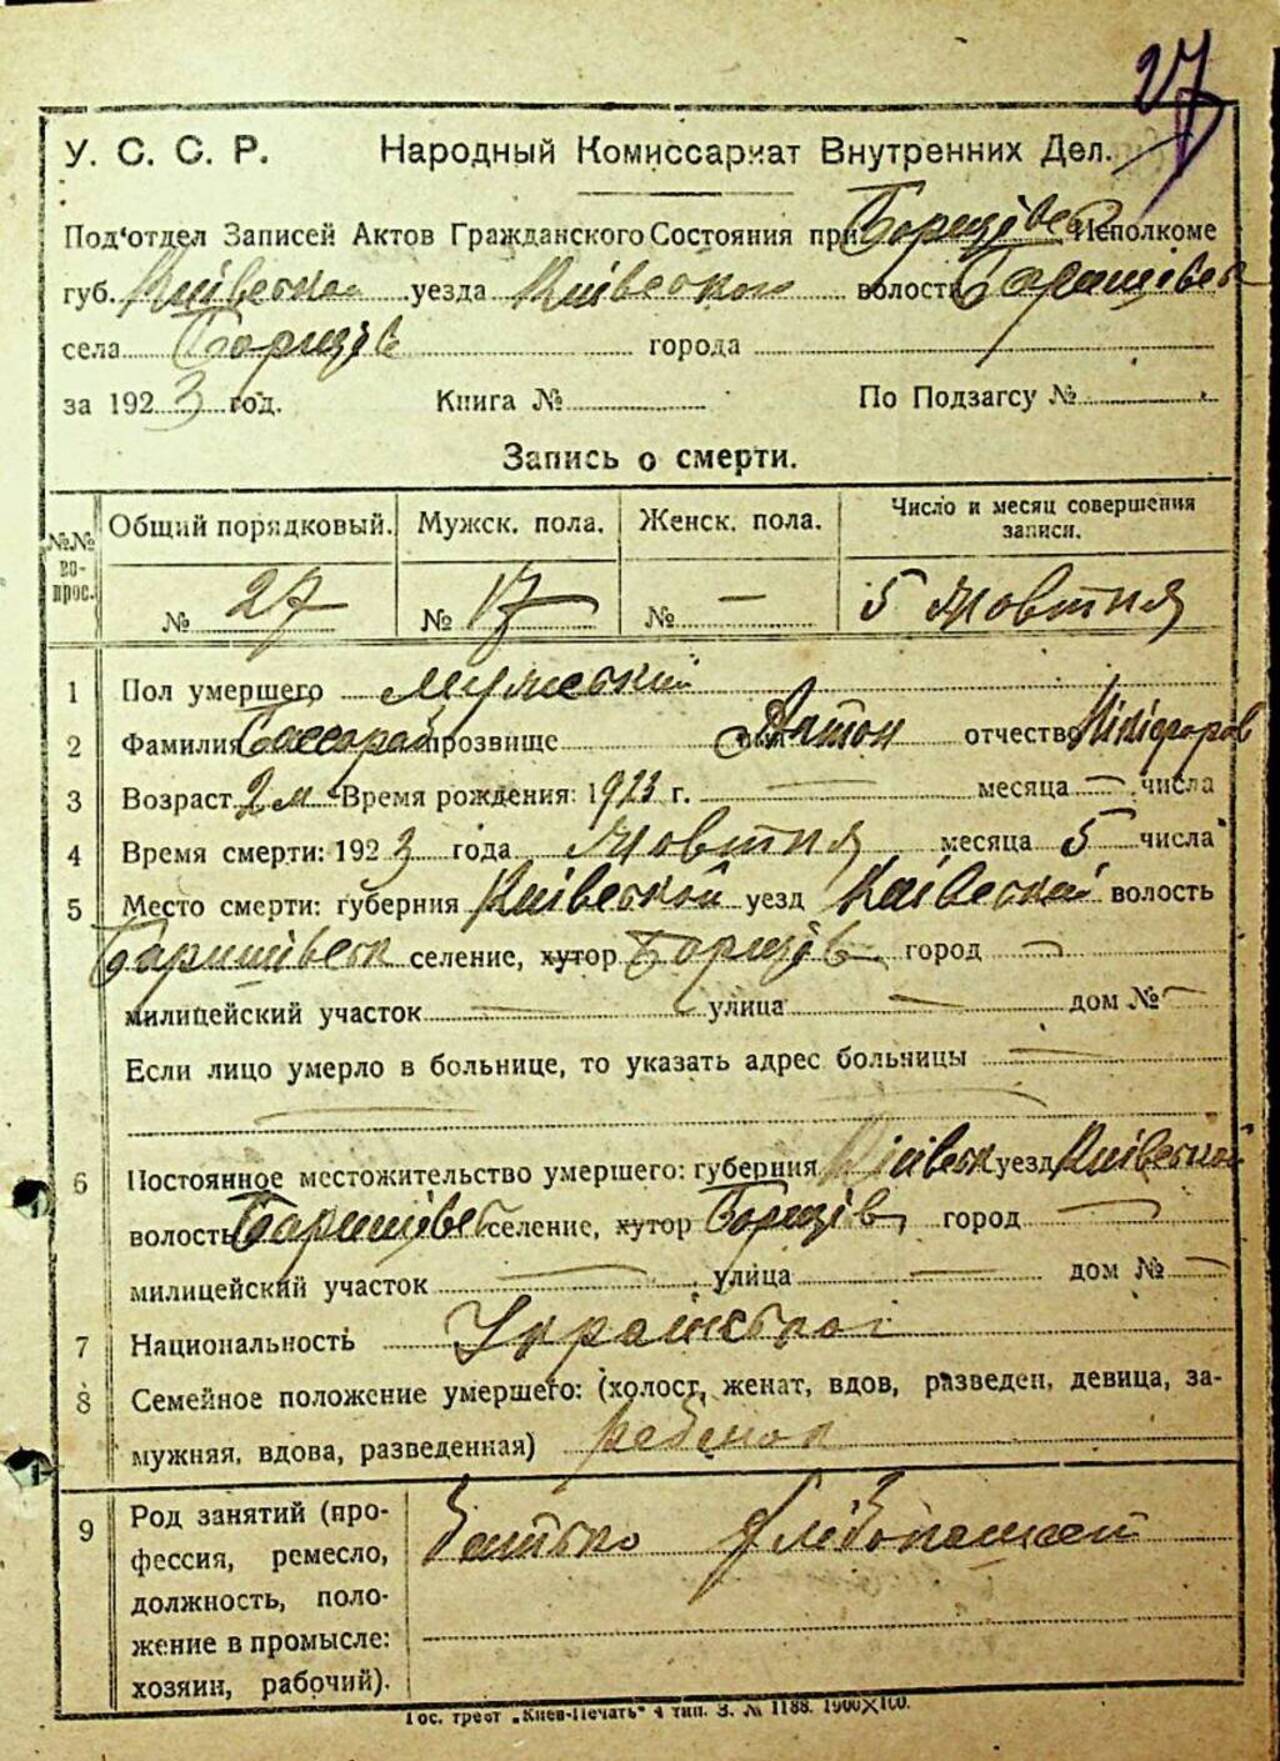 27
У. С. С. Р. Народный Комиссариат Внутренних Дел.
Под'отдел Записей Актов Гражданского Состояния при Борщівск Исполкоме
губ. Київської уезда Київської волости Баришівск
села Борщів города
за 1923 год. Книга № По Подзагсу №
Запись о смерти.
№№ вопрос. Общий порядковый. Мужск. пола. Женск. пола. Число и месяц совершения записи.
№ 27 № 17 № — 5 Жовтня
1 Пол умершего Мужеський
2 Фамилия прозвище Антон отчество Нікіфоров
3 Возраст 2 м Время рождения: 1923 г. — месяца — числа
4 Время смерти: 1923 года Жовтня месяца 5 числа
5 Место смерти: губерния Київської уезд Київської волость
Баришівськ селение, хутор Борщів город —
милицейский участок — улица — дом № —
Если лицо умерло в больнице, то указать адрес больницы —
6 Постоянное местожительство умершего: губерния Київськ уезд Київської
волость Баришівск селение, хутор Борщів город —
милицейский участок — улица — дом № —
7 Национальность Української
8 Семейное положение умершего: (холост, женат, вдов, разведен, девица, за-
мужняя, вдова, разведенная) ребенок
9 Род занятий (про- батько хлібопашець
фессия, ремесло,
должность, поло-
жение в промысле:
хозяин, рабочий).
Гос. трест „Киев-Печать" 4 тип. З. № 1188. 1900×100.